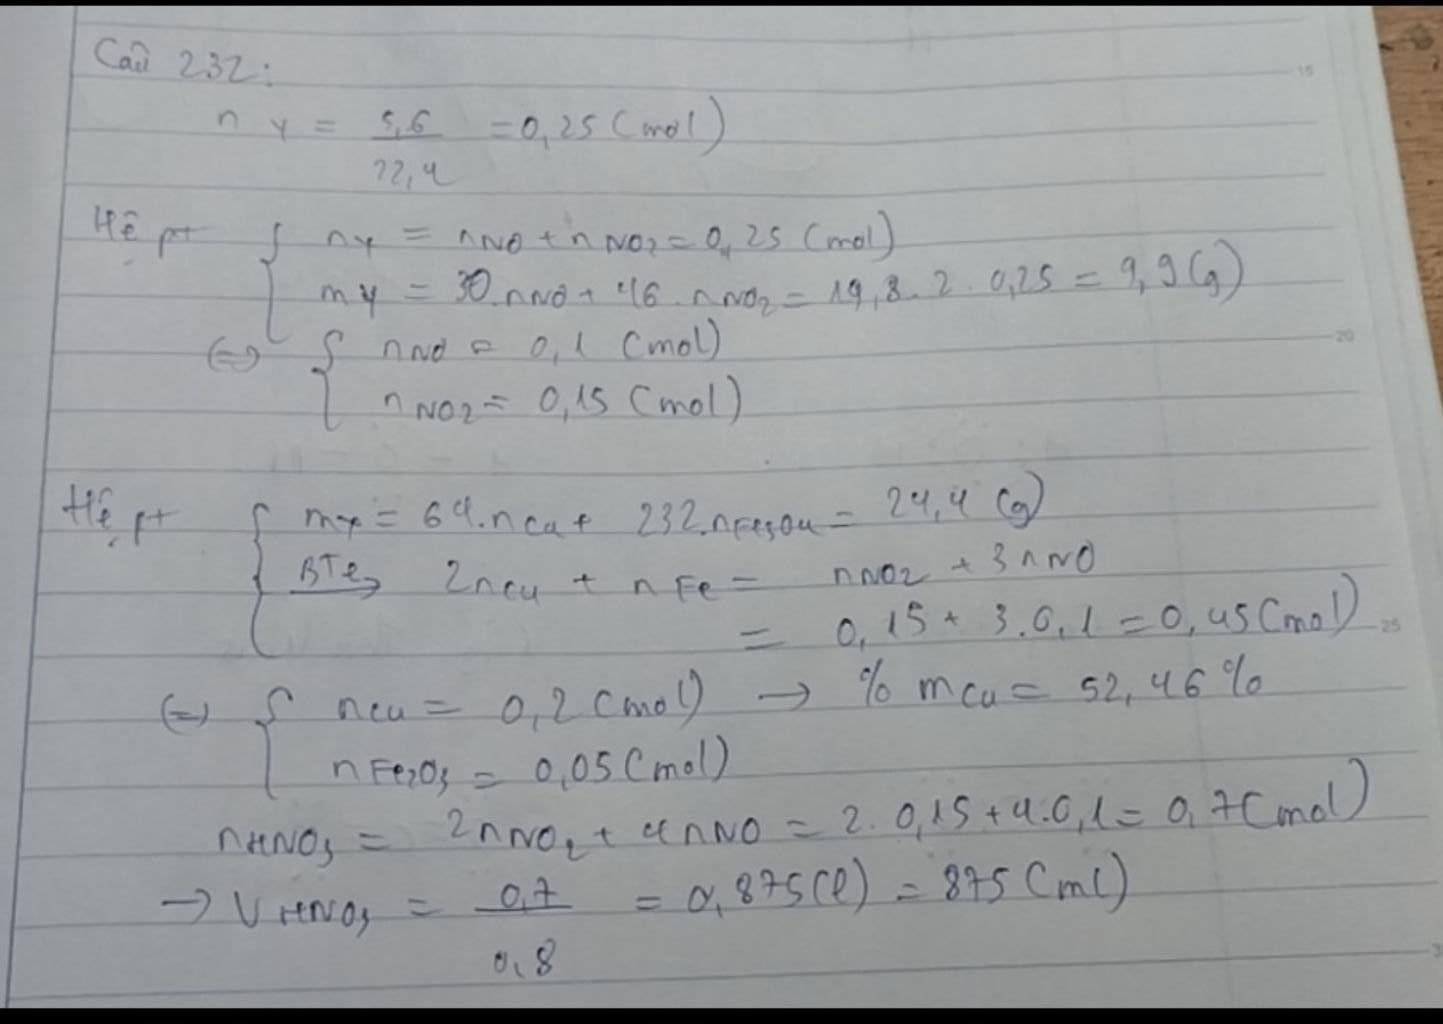 Câu 232:
n Y = 5,6 / 22,4 = 0,25 (mol)
Hệ pt { nY = nNO + n NO2 = 0,25 (mol)
mY = 30.nNO + 46.nNO2 = 19,8.2.0,25 = 9,9 (g)
(=) { nNO = 0,1 (mol)
nNO2 = 0,15 (mol)
Hệ pt { mX = 64.nCu + 232.nFe3O4 = 24,4 (g)
BTe→ 2nCu + nFe = nNO2 + 3nNO
= 0,15 + 3.0,1 = 0,45 (mol)
(=) { nCu = 0,2 (mol) → % mCu = 52,46%
nFe2O3 = 0,05 (mol)
nHNO3 = 2nNO2 + 4nNO = 2.0,15 + 4.0,1 = 0,7 (mol)
→ VHNO3 = 0,7 / 0,8 = 0,875 (l) = 875 (ml)
15
20
25
3